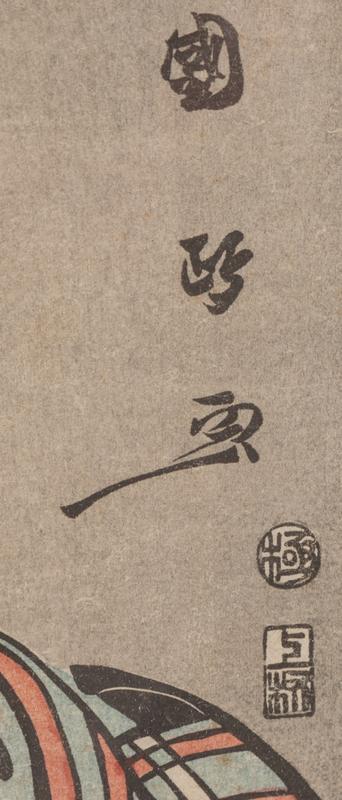 國
政
画
極
上村